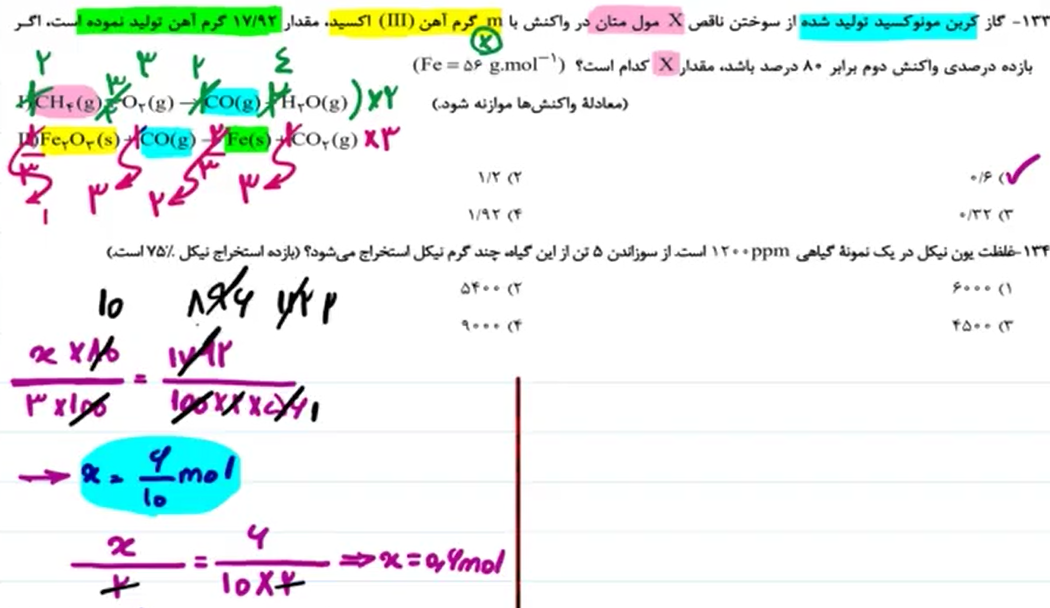 ۱۳۳- گاز کربن مونوکسید تولید شده از سوختن ناقص X مول متان در واکنش با m گرم آهن (III) اکسید، مقدار ۱۷/۹۲ گرم آهن تولید نموده است، اگر
بازده درصدی واکنش دوم برابر ۸۰ درصد باشد، مقدار X کدام است؟ (Fe = ۵۶ g.mol⁻¹)
(معادلهٔ واکنش‌ها موازنه شود.)
۲ ۳ ۲ ۴
I) CH₄(g) + O₂(g) → CO(g) + H₂O(g) ) ×۲
II) Fe₂O₃(s) + CO(g) → Fe(s) + CO₂(g) ×۳
۱ ۳ ۲ ۳
۱) ۰/۶ ✓
۲) ۱/۲
۳) ۰/۳۲
۴) ۱/۹۲
۱۳۴- غلظت یون نیکل در یک نمونهٔ گیاهی ۱۲۰۰ppm است. از سوزاندن ۵ تن از این گیاه، چند گرم نیکل استخراج می‌شود؟ (بازده استخراج نیکل ۷۵٪ است.)
۱) ۶۰۰۰
۲) ۵۴۰۰
۳) ۴۵۰۰
۴) ۹۰۰۰
x × ۸۰ / ۳ × ۱۰۰ = ۱۷۹۲ / ۱۰۰ × ۲ × ۵۶
→ x = ۶/۱۰ mol
x / ۲ = ۶ / ۱۰ × ۲ ⇒ x = ۰٫۶ mol